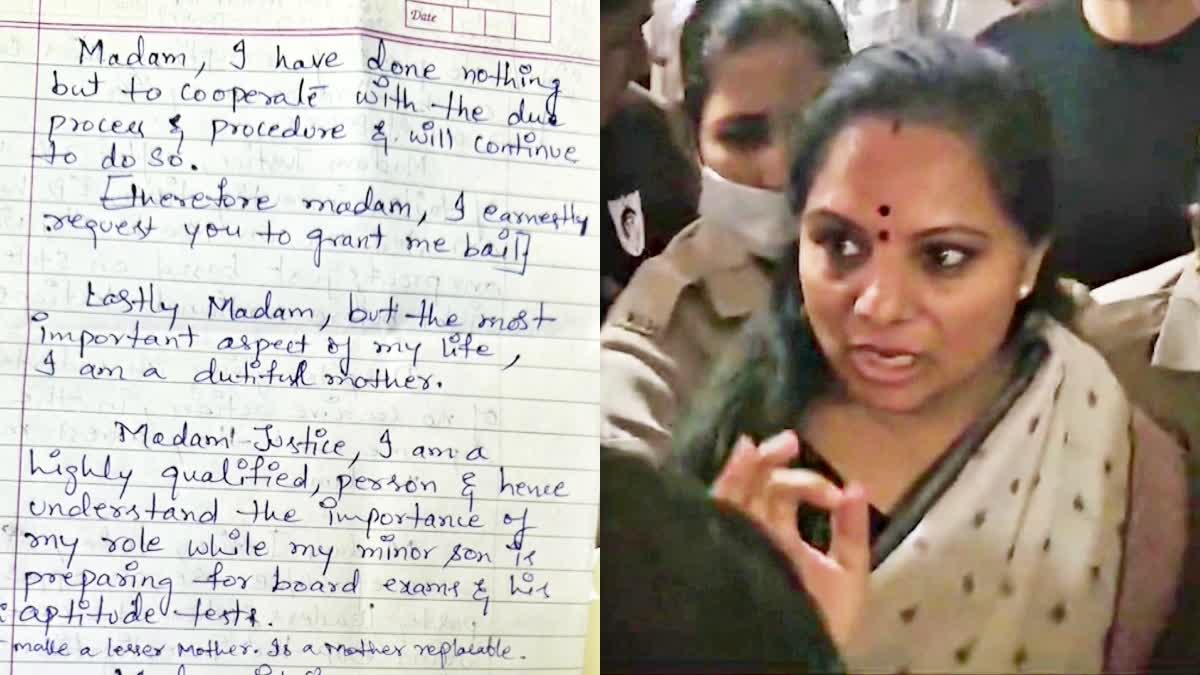 Date
Madam, I have done nothing
but to cooperate with the due
process & procedure & will continue
to do so.
[Therefore madam, I earnestly
request you to grant me bail]
Lastly Madam, but the most
important aspect of my life,
I am a dutiful mother.
Madam Justice, I am a
highly qualified, person & hence
understand the importance of
my role while my minor son is
preparing for board exams & his
aptitude tests.
make a lesser Mother. Is a Mother replacable.